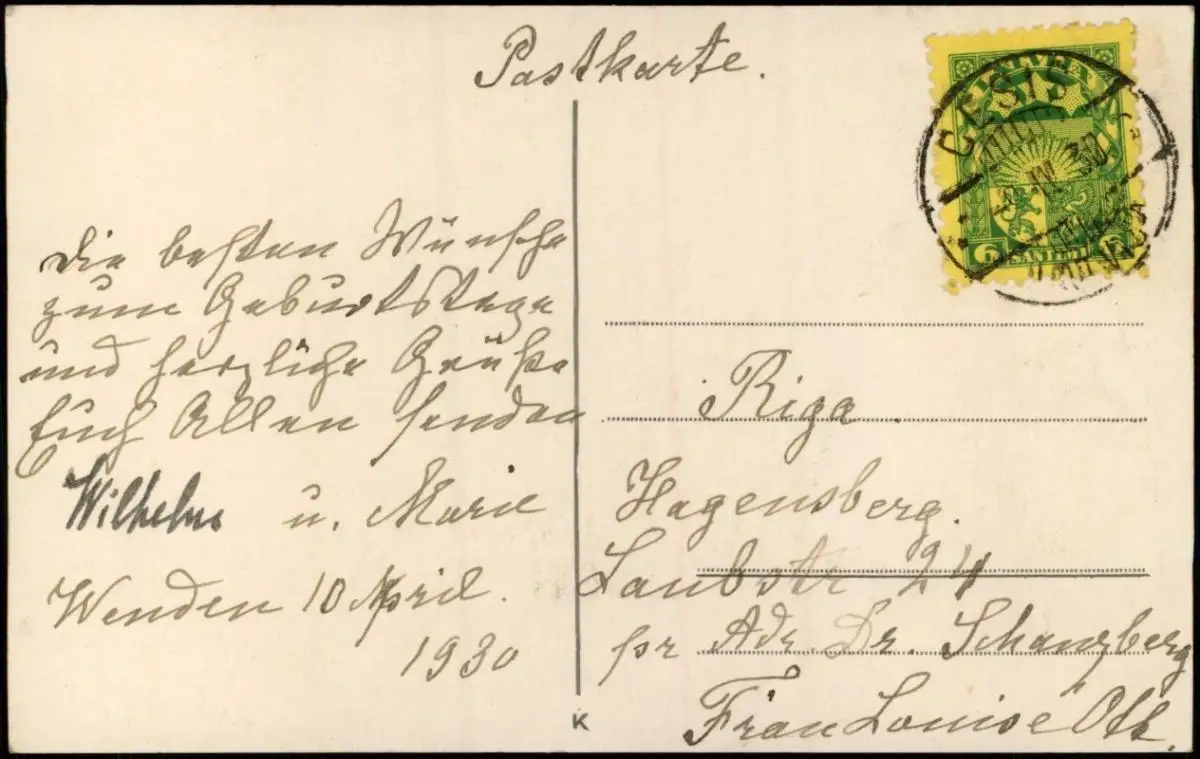 Postkarte.
LATVIJA
6 SANTIMI 6
CESIS
IV 30
Die besten Wünsche
zum Geburtstage
und herzliche Grüße
Euch Allen senden
Wilhelm u. Marie
Wenden 10 April.
1930
Riga.
Hagensberg.
Laubstr 24
pr Adr. Dr. Schanzberg
Frau Louise Ott.
K